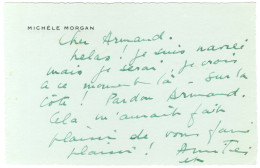 MICHÈLE MORGAN
Cher Armand.
helas! je suis navrée
mais je serai je crois
a ce moment là - sur la
Côte! Pardon Armand.
Cela m'aurait fait
plaisir de vous faire
plaisir!